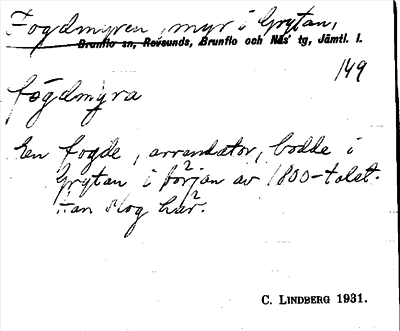 Fogdmyren, myr i Grytan,
Brunflo sn, Revsunds, Brunflo och Näs' tg, Jämtl. l.
149
fógdmýra
En fogde, arrendator, bodde i
Grytan i början av 1800-talet.
Han slog här.
C. LINDBERG 1931.